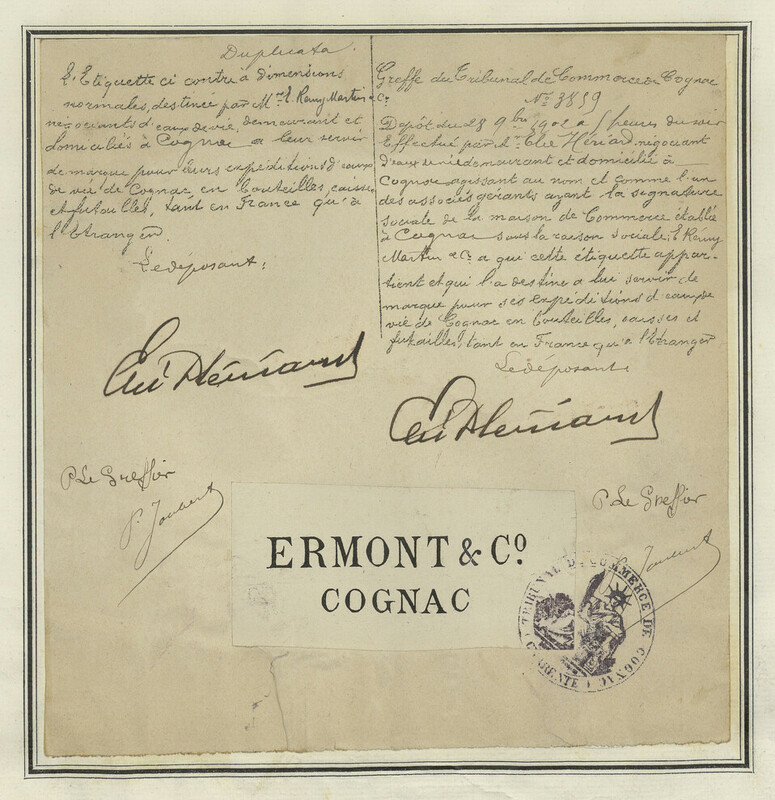 Duplicata.
L'Etiquette ci contre à dimensions
normales, destinée par M.rs E. Remy Martin & Co.
négociants d'eaux de vie, demeurant et
domiciliés à Cognac a leur servir
de marque pour leurs expéditions d'eaux
de vie de Cognac en bouteilles, caisses
et futailles, tant en France qu'à
l'Etranger.
Le déposant:
Elie Hériard
P. Le Greffier
P. Joubert
Greffe du Tribunal de Commerce de Cognac
No. 3859
Dépôt du 28 9bre 1902 à 5 heures du soir
Effectué par M. Elie Hériard, négociant
d'eaux de vie demeurant et domicilié à
Cognac agissant au nom et comme l'un
des associés gérants ayant la signature
sociale de la maison de Commerce établie
à Cognac sous la raison sociale, E. Rémy
Martin & Co. a qui cette étiquette appar-
tient et qui l'a destine a lui servir de
marque pour ses expéditions d'eaux de
vie de Cognac en bouteilles, caisses et
futailles, tant en France qu'a l'Etranger
Le déposant:
Elie Hériard
P. Le Greffier
P. Joubert
ERMONT & Co.
COGNAC
TRIBUNAL DE COMMERCE DE COGNAC
CHARENTE